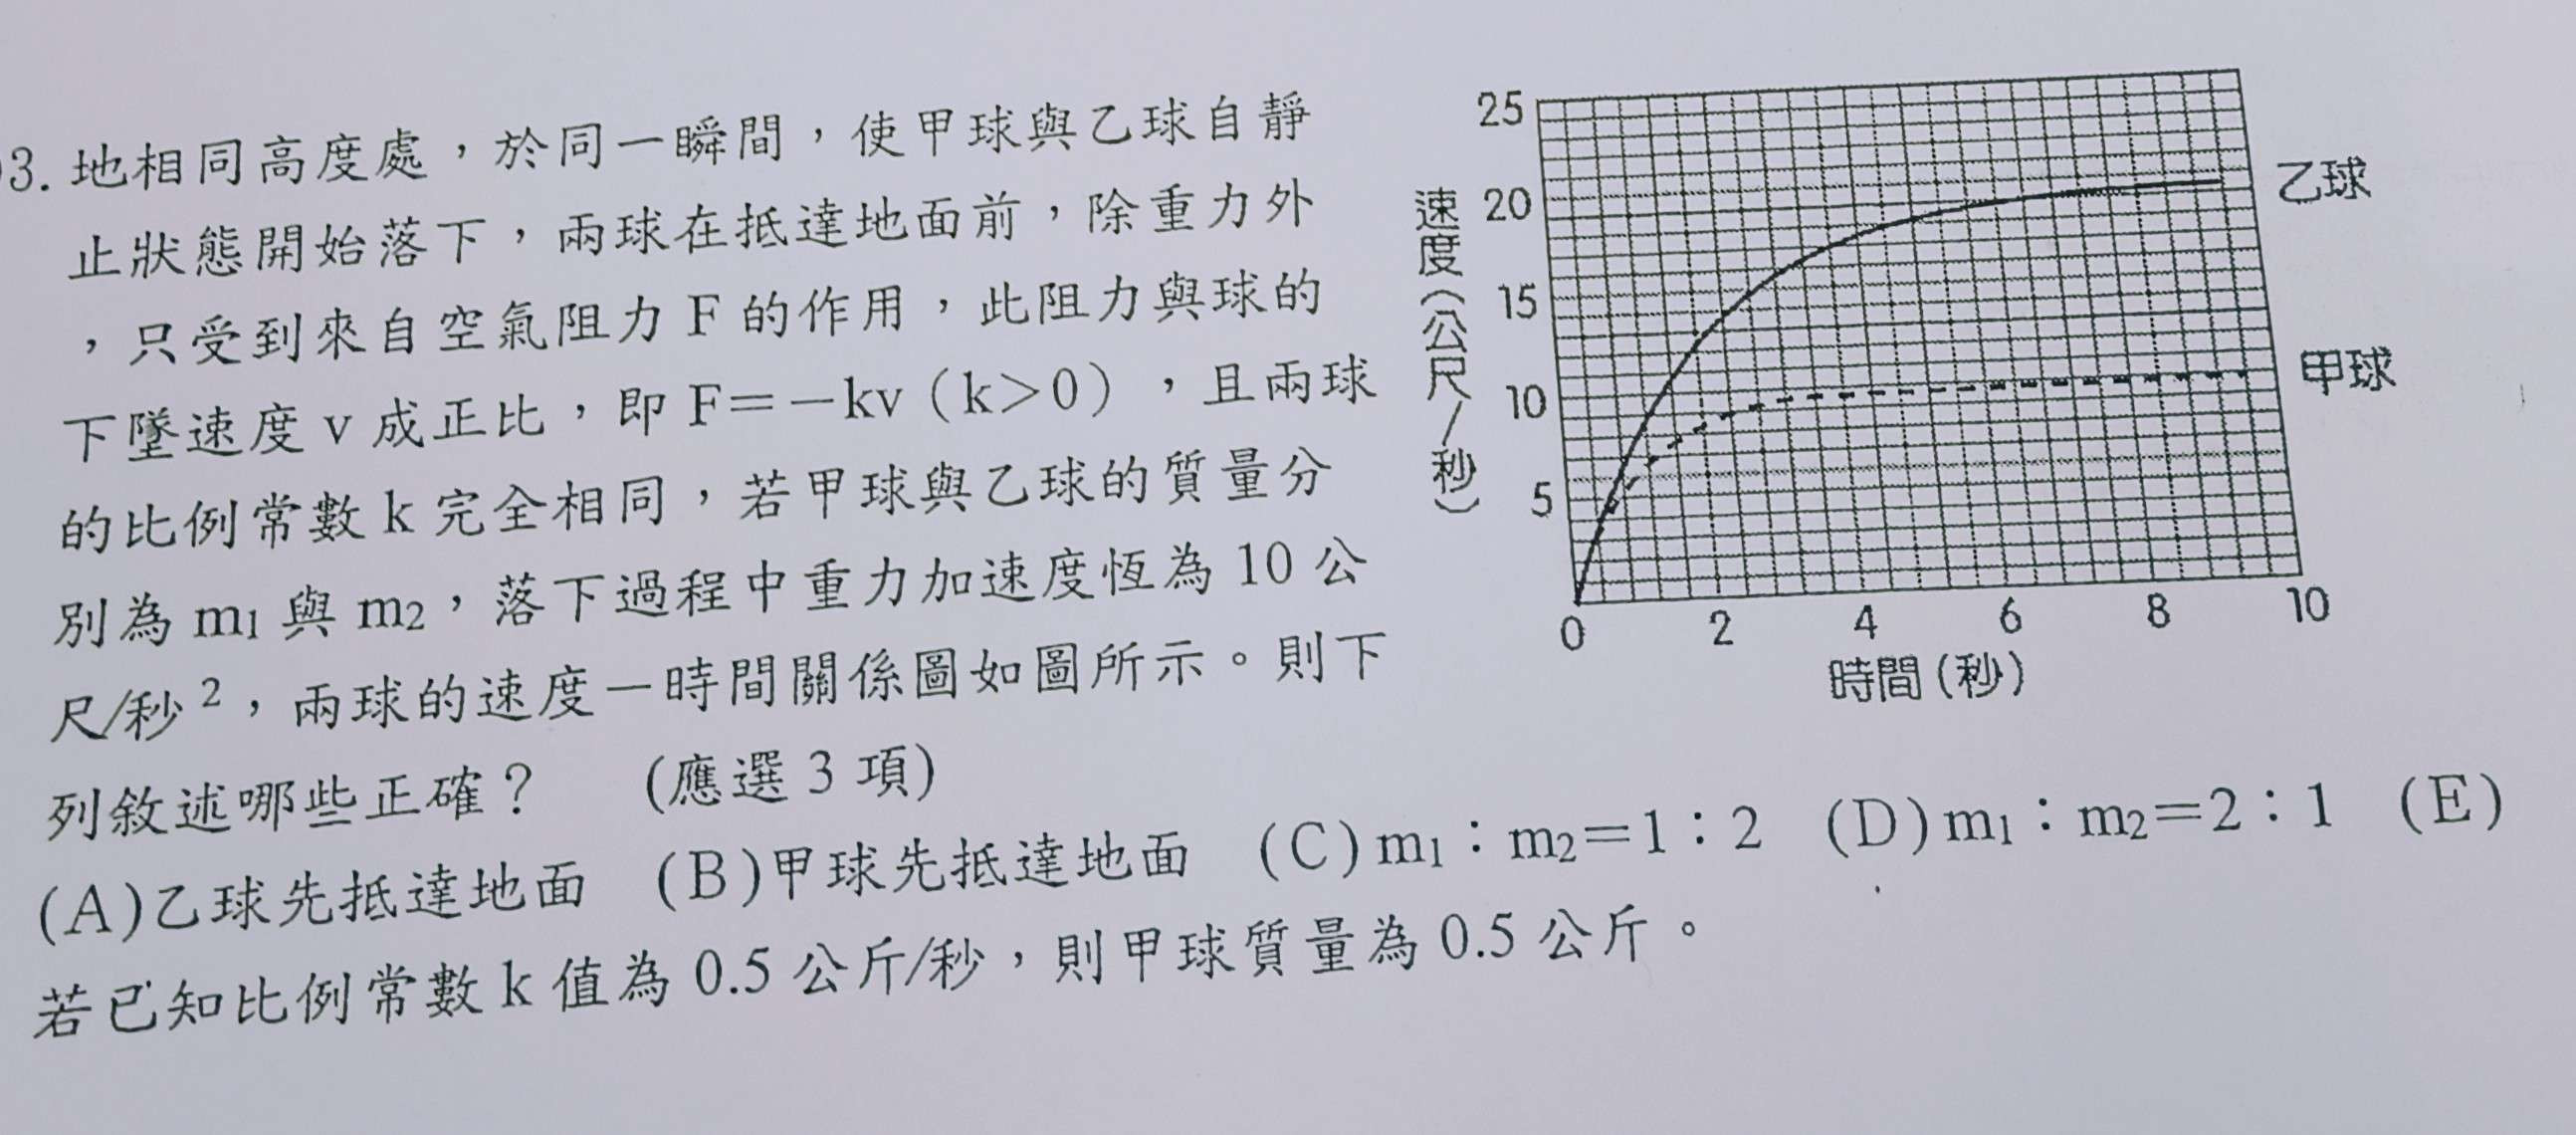 3. 地相同高度處，於同一瞬間，使甲球與乙球自靜
止狀態開始落下，兩球在抵達地面前，除重力外
，只受到來自空氣阻力 F 的作用，此阻力與球的
下墜速度 v 成正比，即 F＝－kv（k＞0），且兩球
的比例常數 k 完全相同，若甲球與乙球的質量分
別為 m₁ 與 m₂，落下過程中重力加速度恆為 10 公
尺/秒²，兩球的速度－時間關係圖如圖所示。則下
列敘述哪些正確？ (應選 3 項)
(A)乙球先抵達地面 (B)甲球先抵達地面 (C)m₁：m₂＝1：2 (D)m₁：m₂＝2：1 (E)
若已知比例常數 k 值為 0.5 公斤/秒，則甲球質量為 0.5 公斤。
速度(公尺/秒)
25
20
15
10
5
乙球
甲球
0 2 4 6 8 10
時間(秒)